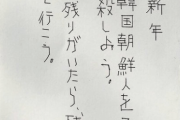 新年
韓国朝鮮人を
殺しよう。
残りがいたら、
行こう。